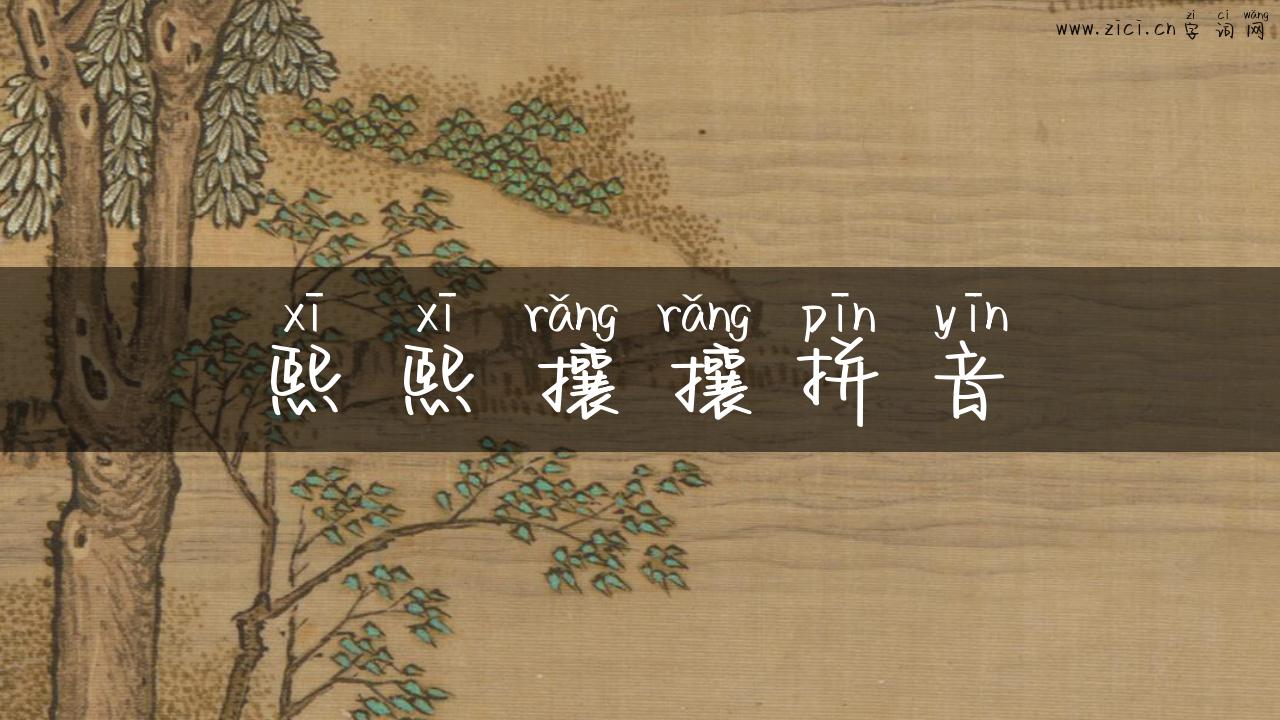 zì cí wǎng
www.zici.cn 字词网
xī xī rǎng rǎng pīn yīn
熙熙攘攘拼音